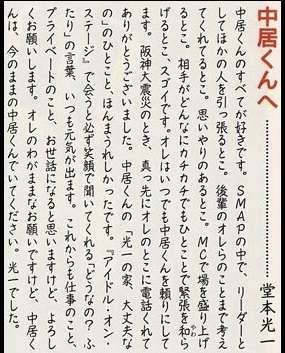 中居くんへ
堂本光一
中居くんのすべてが好きです。SMAPの中で、リーダーと
してほかの人を引っ張るとこ。後輩のオレらのことまで考え
てくれてるとこ。思いやりのあるとこ。MCで場を盛り上げ
るとこ。相手がどんなにカチカチでもひとことで緊張を和ら
げるとこ、スゴイです。オレはいつでも中居くんを頼りにして
ます。阪神大震災のとき、真っ先にオレのとこに電話くれて
ありがとうございました。中居くんの「光一の家、大丈夫な
の」のひとこと、ほんまうれしかったです。『アイドル・オン・
ステージ』で会うと必ず笑顔で聞いてくれる「どうなの？ ふ
たり」の言葉、いつも元気が出ます。これからも仕事のこと、
プライベートのこと、お世話になると思いますけど、よろし
くお願いします。オレのわがままなお願いですけど、中居く
んは、今のままの中居くんでいてください。光一でした。